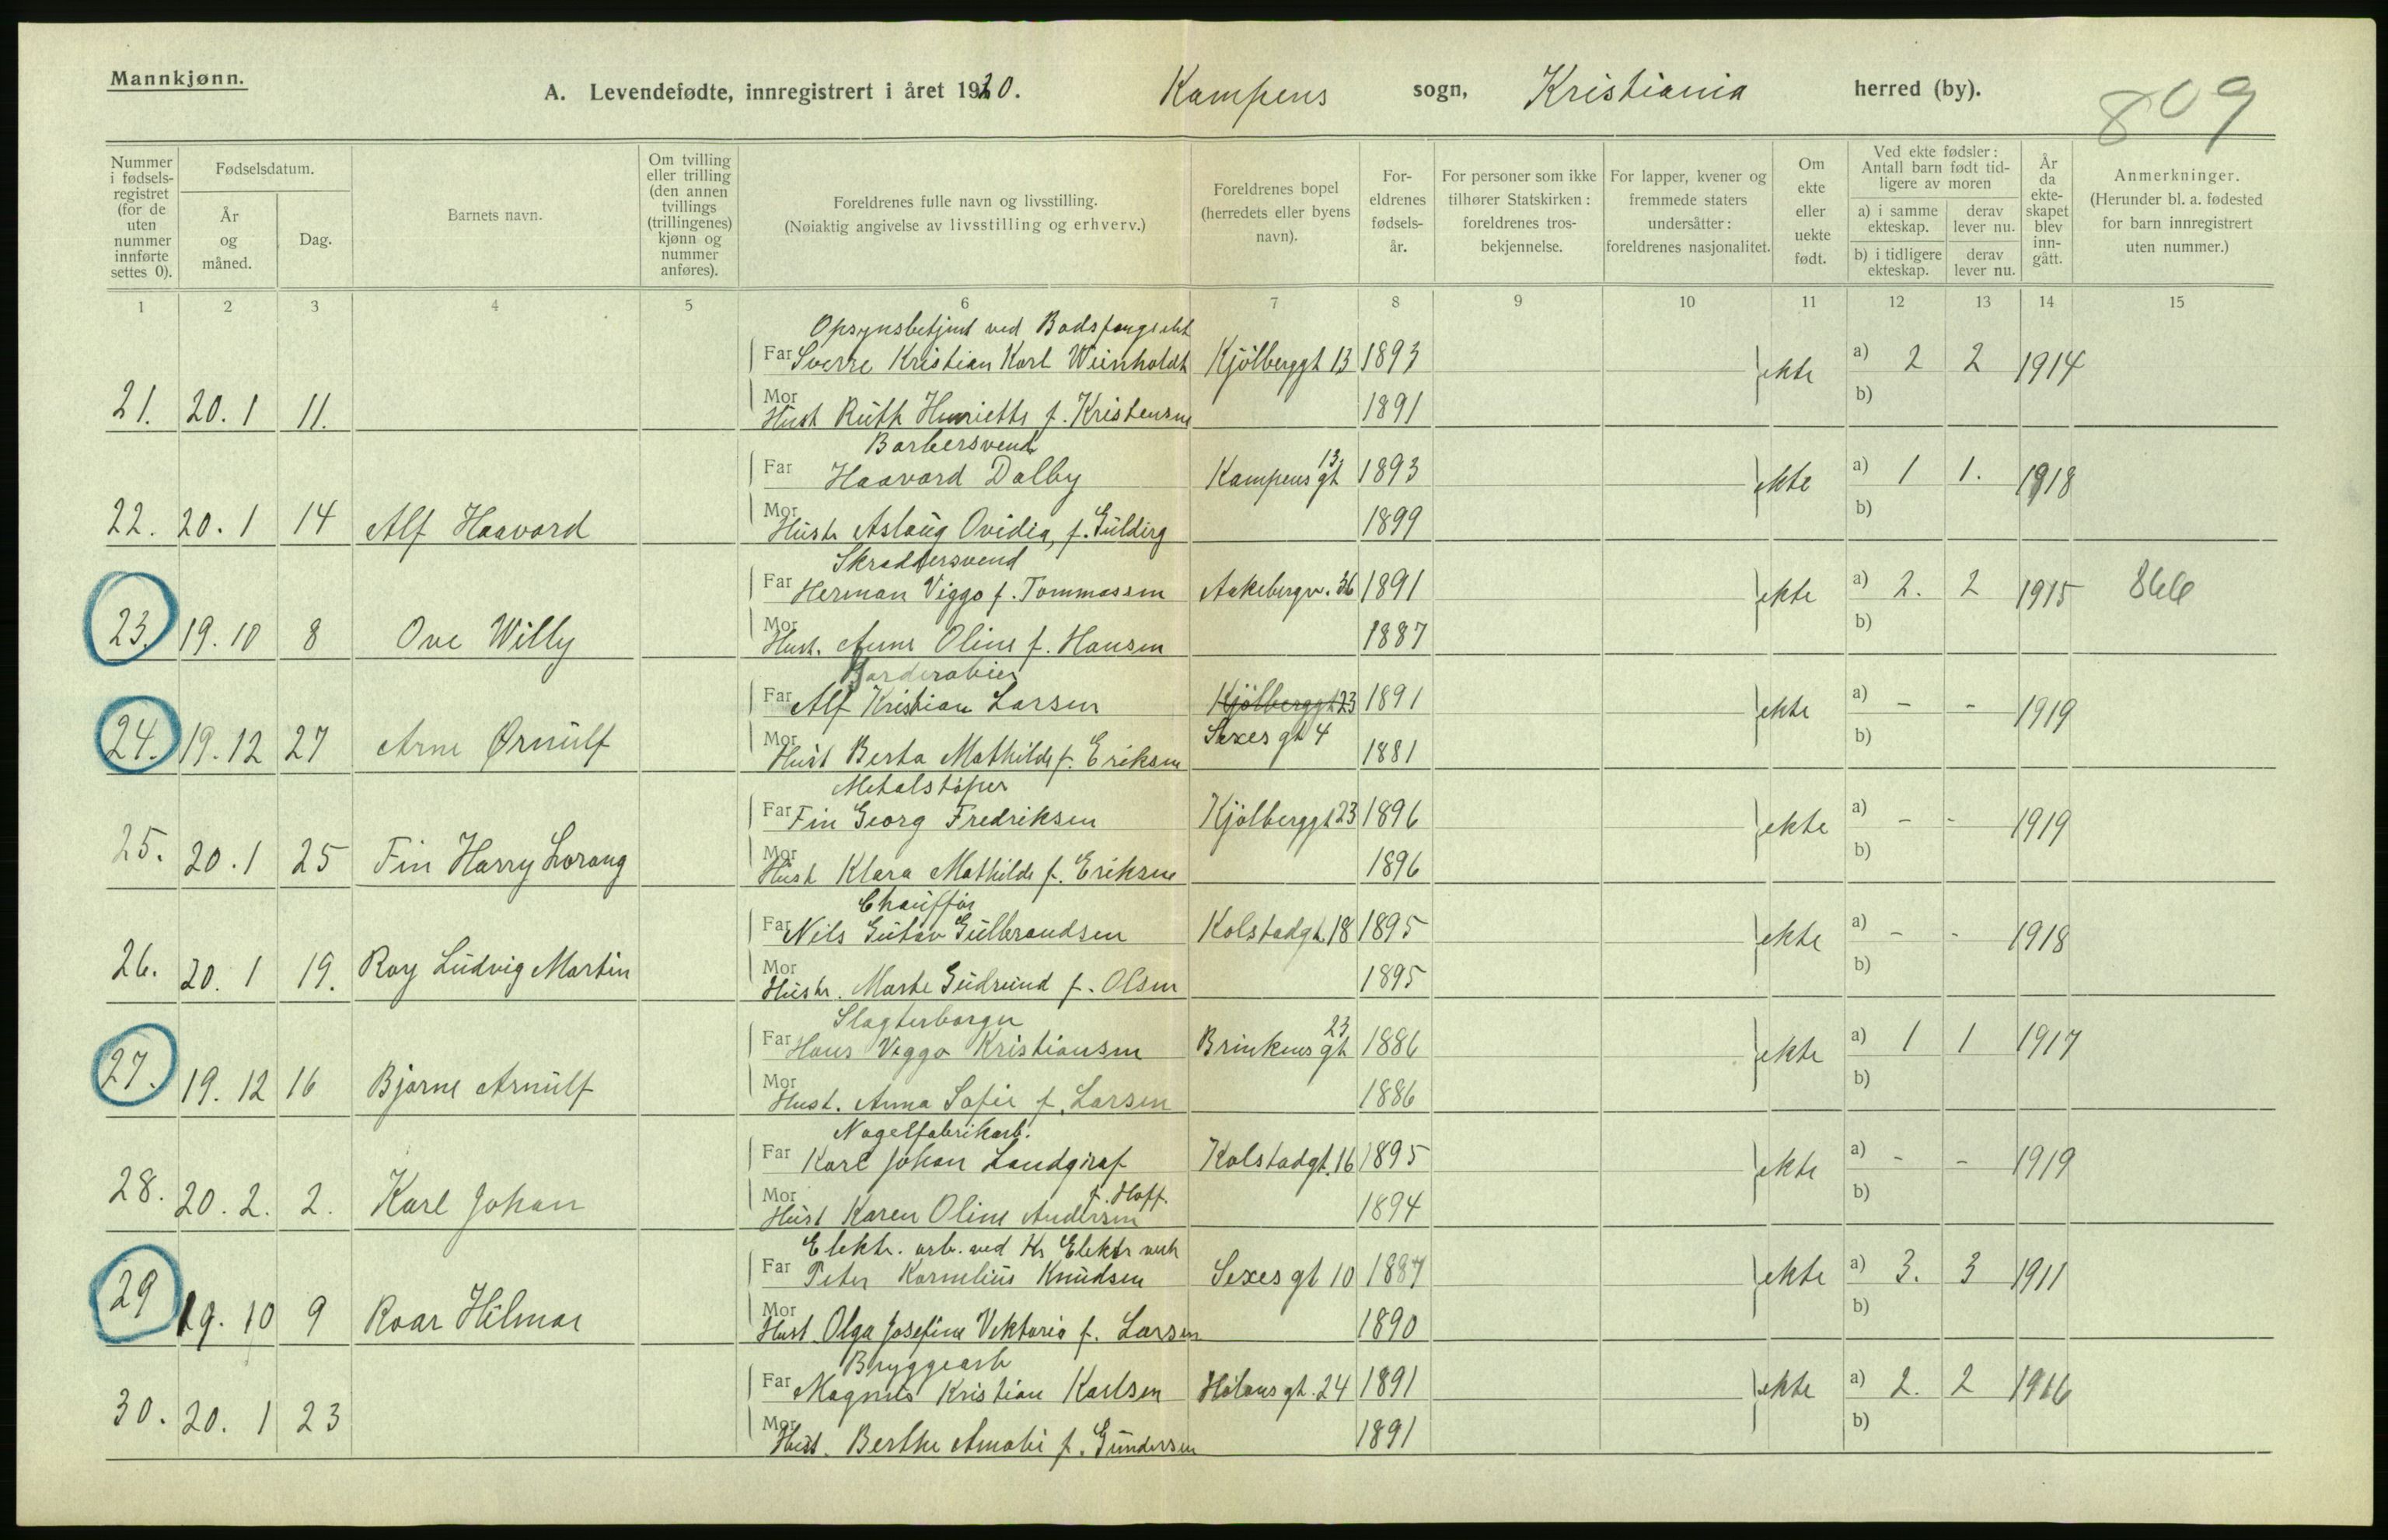 Mannkjønn.
A. Levendefødte, innregistrert i året 1920. Kampens sogn, Kristiania herred (by). 809
Nummer i fødselsregistret (for de uten nummer innførte settes 0).
Fødselsdatum.
År og måned.
Dag.
Barnets navn.
Om tvilling eller trilling (den annen tvillings (trillingenes) kjønn og nummer anføres).
Foreldrenes fulle navn og livsstilling.
(Nøiaktig angivelse av livsstilling og erhverv.)
Foreldrenes bopel (herredets eller byens navn).
Foreldrenes fødselsår.
For personer som ikke tilhører Statskirken: foreldrenes trosbekjennelse.
For lapper, kvener og fremmede staters undersåtter: foreldrenes nasjonalitet.
Om ekte eller uekte født.
Ved ekte fødsler: Antall barn født tidligere av moren
a) i samme ekteskap. derav lever nu.
b) i tidligere ekteskap. derav lever nu.
År da ekteskapet blev inngått.
Anmerkninger.
(Herunder bl. a. fødested for barn innregistrert uten nummer.)
1 2 3 4 5 6 7 8 9 10 11 12 13 14 15
Opsynsbetjent ved Bodsfængslet
Far Sverre Kristian Karl Weinholdt Kjölberggt 13 1893 ekte a) 2 2 1914
21. 20. 1 11. Mor Hust Ruth Henriette f. Kristensen 1891 b)
Barbersvend
Far Haavard Dalby Kampens gt 13. 1893 ekte a) 1 1. 1918
22. 20. 1 14 Alf Haavard Mor Hustr Aslaug Ovidia, f. 1899 b)
Skræddersvend
Far Herman Viggo f. Tommassen Aakebergv. 36 1891 ekte a) 2. 2 1915 866
23. 19. 10 8 Ove Willy Mor Hust. Anne Oline f. Hansen 1887 b)
Garderobier
Far Alf Kristian Larsen Kjölberggt 23 1891 ekte a) - - 1919
24. 19. 12 27 Arne Ørnulf Mor Hust Berta Mathilde f. Eriksen Sexes gt 4 1881 b)
Metalstöper
Far Fin Georg Fredriksen Kjölberggt 23 1896 ekte a) - - 1919
25. 20. 1 25 Fin Harry Lorang Mor Hust Klara Mathilde f. Eriksen 1896 b)
Chauffør
Far Nils Gutav Gulbrandsen Kolstadgt. 18 1895 ekte a) - - 1918
26. 20. 1 19. Roy Ludvig Martin Mor Hustr. Marte Gudrund f. Olsen 1895 b)
Slagterborger
Far Hans Viggo Kristiansen Brinkens gt 23 1886 ekte a) 1 1 1917
27. 19. 12 16 Bjarne Arnulf Mor Hust. Anna Sofie f. Larsen 1886 b)
Nagelfabrikarb.
Far Karl Johan Landgraf Kolstadgt. 16 1895 ekte a) - - 1919
28. 20. 2. 2. Karl Johan Mor Hust Karen Oline Andersen f. Hoff. 1894 b)
Elektr. arb. ved Kr Elektr verk
Far Peter Kornelius Knudsen Sexes gt 10 1887 ekte a) 3. 3 1911
29 19. 10 9 Roar Hilmar Mor Hust. Olga Josefine Viktoria f. Larsen 1890 b)
Bryggearb
Far Magnus Kristian Karlsen Hølans gt. 24 1891 ekte a) 2. 2 1916
30. 20. 1 23 Mor Hust. Berthe Amalie f. Gundersen 1891 b)